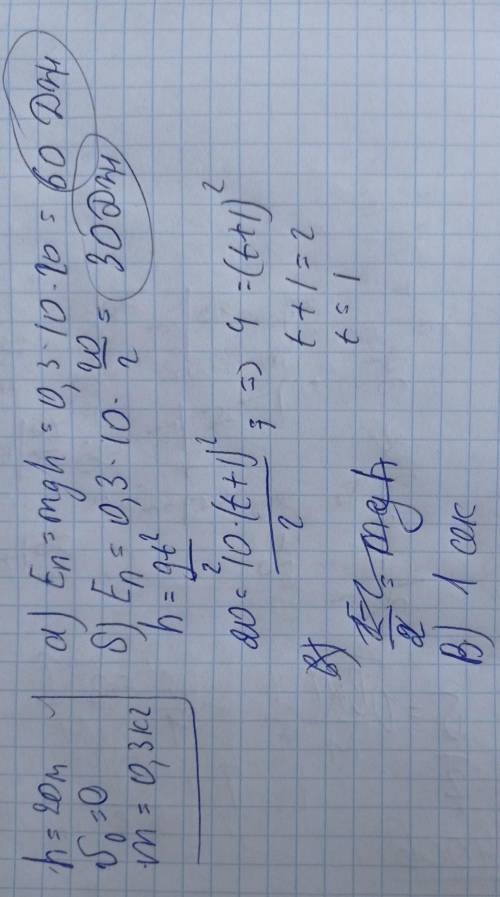 h = 20м
v₀ = 0
m = 0,3 кг
а) Eп = mgh = 0,3 · 10 · 20 = 60 Дж
б) Eп = 0,3 · 10 · 20/2 = 30 Дж
h = gt²/2
20 = 10 · (t+1)²/2 => 4 = (t+1)²
t + 1 = 2
t = 1
= mgh
В) 1 сек